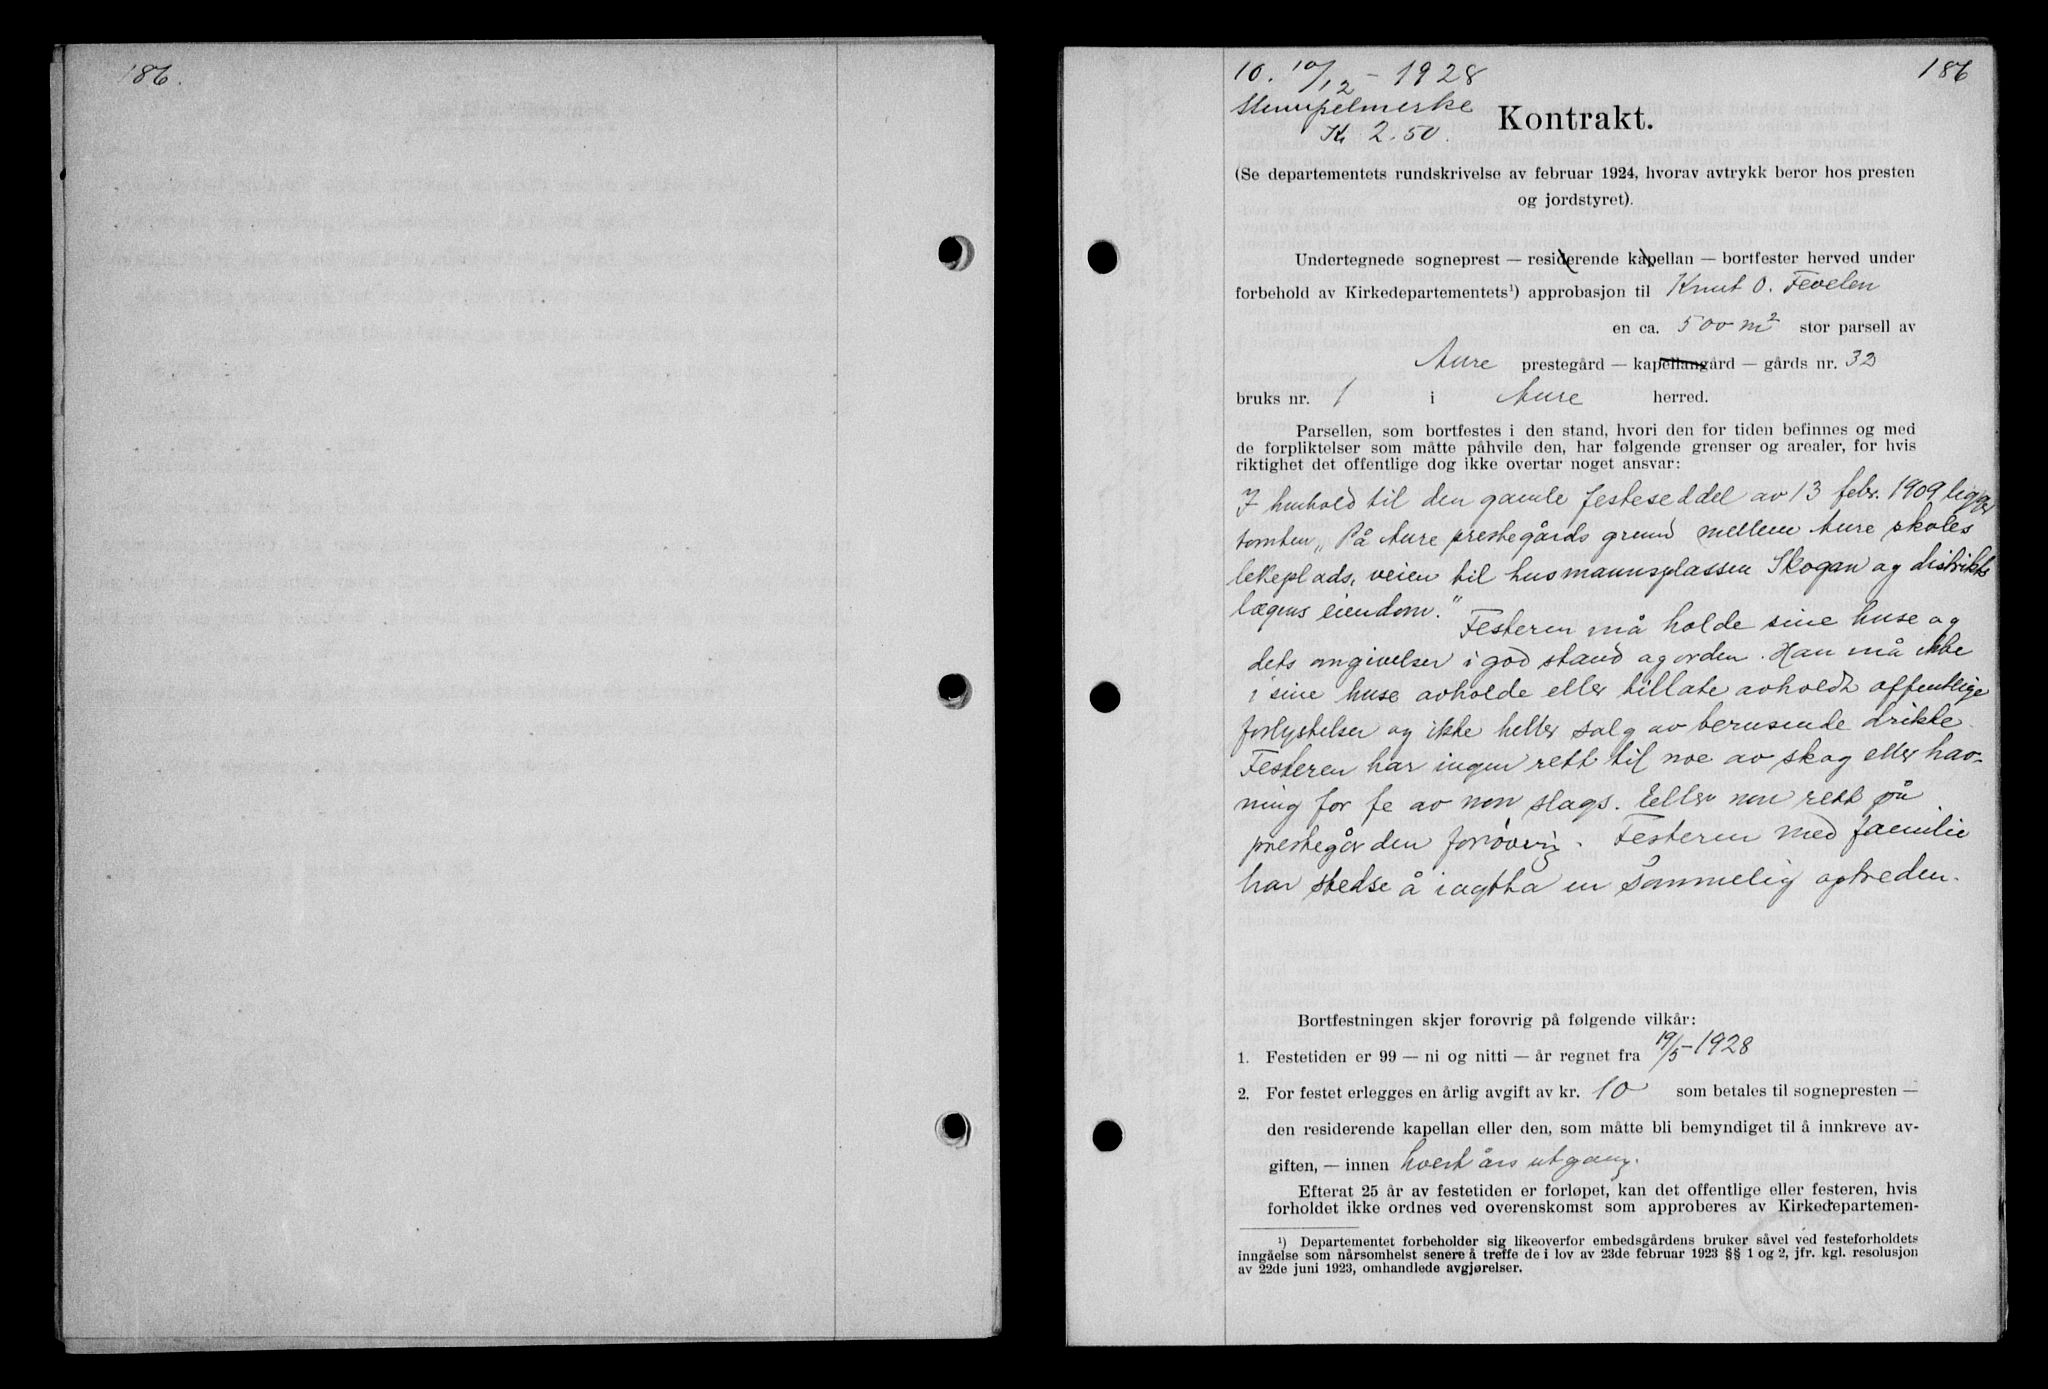 186.
10. 10/12 - 1928
186
Stempelmerke
Kr. 2.50.
Kontrakt.
(Se departementets rundskrivelse av februar 1924, hvorav avtrykk beror hos presten
og jordstyret).
Undertegnede sogneprest — residerende kapellan — bortfester herved under
forbehold av Kirkedepartementets¹) approbasjon til Knut O. Fevelen
en ca. 500 m² stor parsell av
Aure prestegård — kapellangård — gårds nr. 32
bruks nr. 1 i Aure herred.
Parsellen, som bortfestes i den stand, hvori den for tiden befinnes og med
de forpliktelser som måtte påhvile den, har følgende grenser og arealer, for hvis
riktighet det offentlige dog ikke overtar noget ansvar:
I henhold til den gamle festeseddel av 13 febr. 1909 ligger
tomten „På Aure prestegårds grund mellem Aure skoles
lekeplads, veien til husmannsplassen Skogan og distrikts
lægens eiendom."
Festeren må holde sine huse og
dets omgivelser i god stand og orden. Han må ikke
i sine huse avholde eller tillate avholdt offentlige
forlystelser og ikke heller salg av berusende drikke.
Festeren har ingen rett til noe av skog eller hav-
ning for fe av non slags. Eller non rett på
prestegården forøvrig. Festeren med familie
har stedse å iagtta en sømmelig optreden.
Bortfestningen skjer forøvrig på følgende vilkår:
1. Festetiden er 99 — ni og nitti — år regnet fra 19/5-1928
2. For festet erlegges en årlig avgift av kr. 10 som betales til sognepresten —
den residerende kapellan eller den, som måtte bli bemyndiget til å innkreve av-
giften, — innen hvert års utgang.
Efterat 25 år av festetiden er forløpet, kan det offentlige eller festeren, hvis
forholdet ikke ordnes ved overenskomst som approberes av Kirkedepartemen-
¹) Departementet forbeholder sig likeoverfor embedsgårdens bruker såvel ved festeforholdets
inngåelse som nårsomhelst senere å treffe de i lov av 23de februar 1923 §§ 1 og 2, jfr. kgl. resolusjon
av 22de juni 1923, omhandlede avgjørelser.